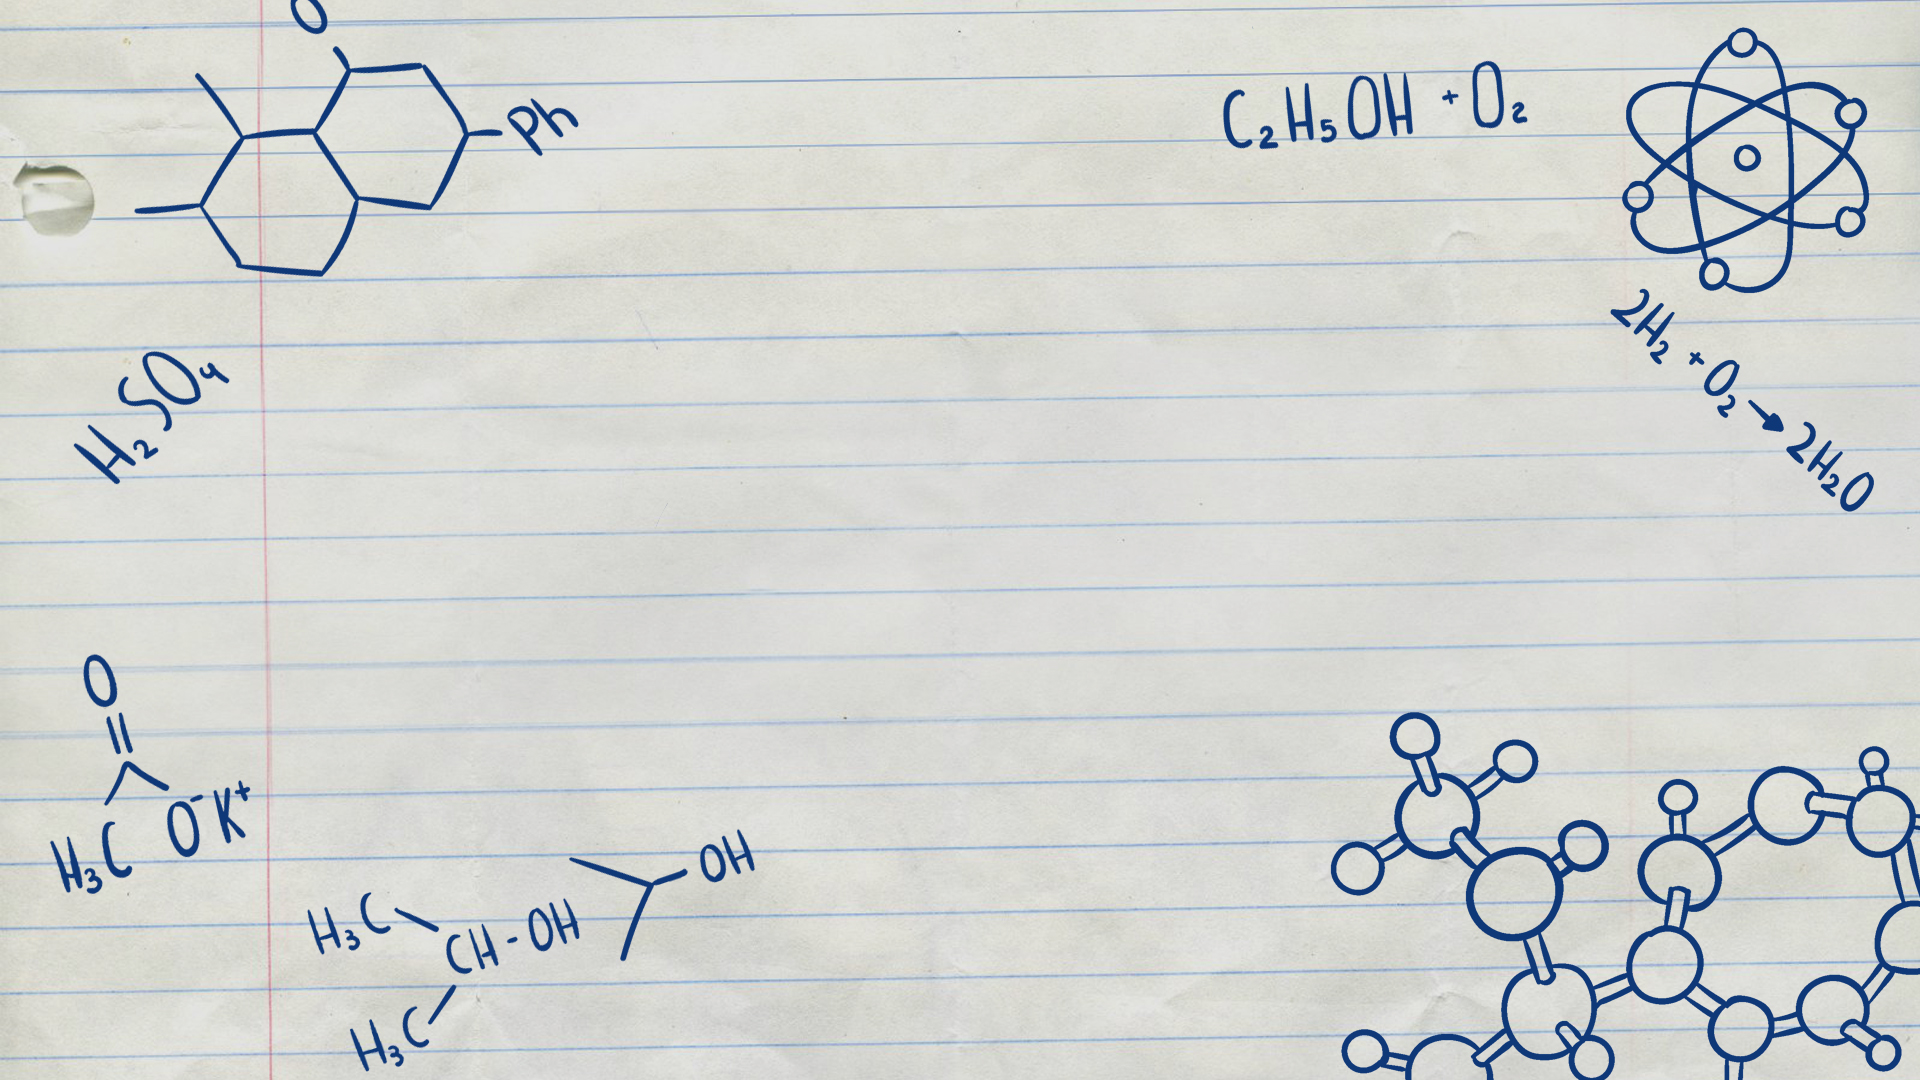 O
Ph
C₂H₅OH + O₂
2H₂ + O₂ → 2H₂O
H₂SO₄
O
H₃C O⁻K⁺
OH
H₃C
CH-OH
H₃C